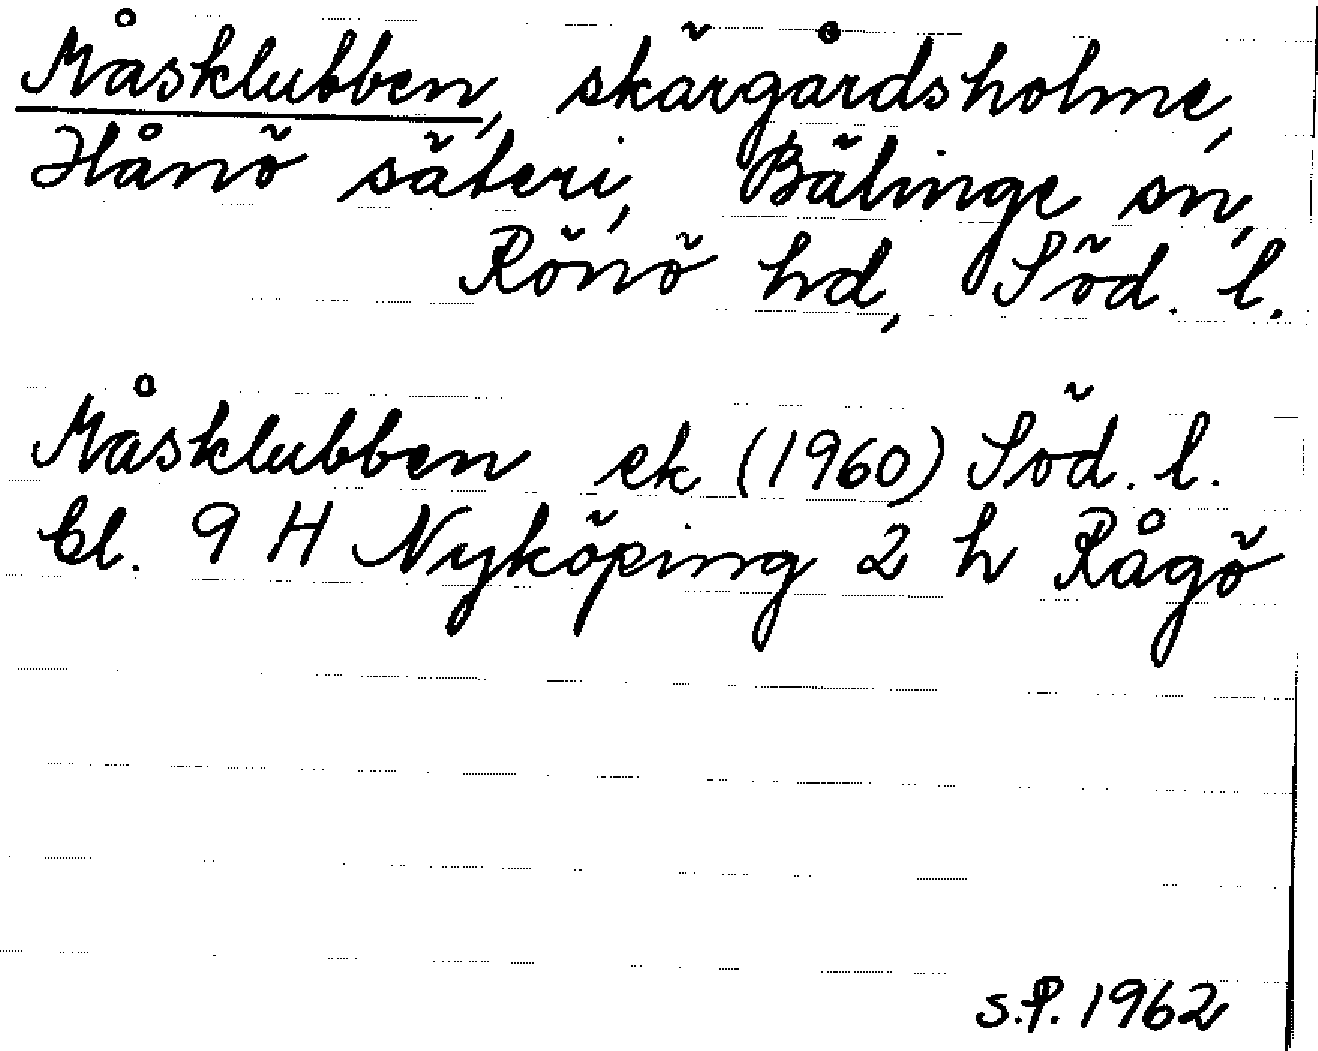 Måsklubben, skärgårdsholme,
Hånö säteri, Bälinge sn,
Rönö hd, Söd. l.
Måsklubben ek (1960) Söd. l.
bl. 9 H Nyköping 2 h Rågö
s.P. 1962